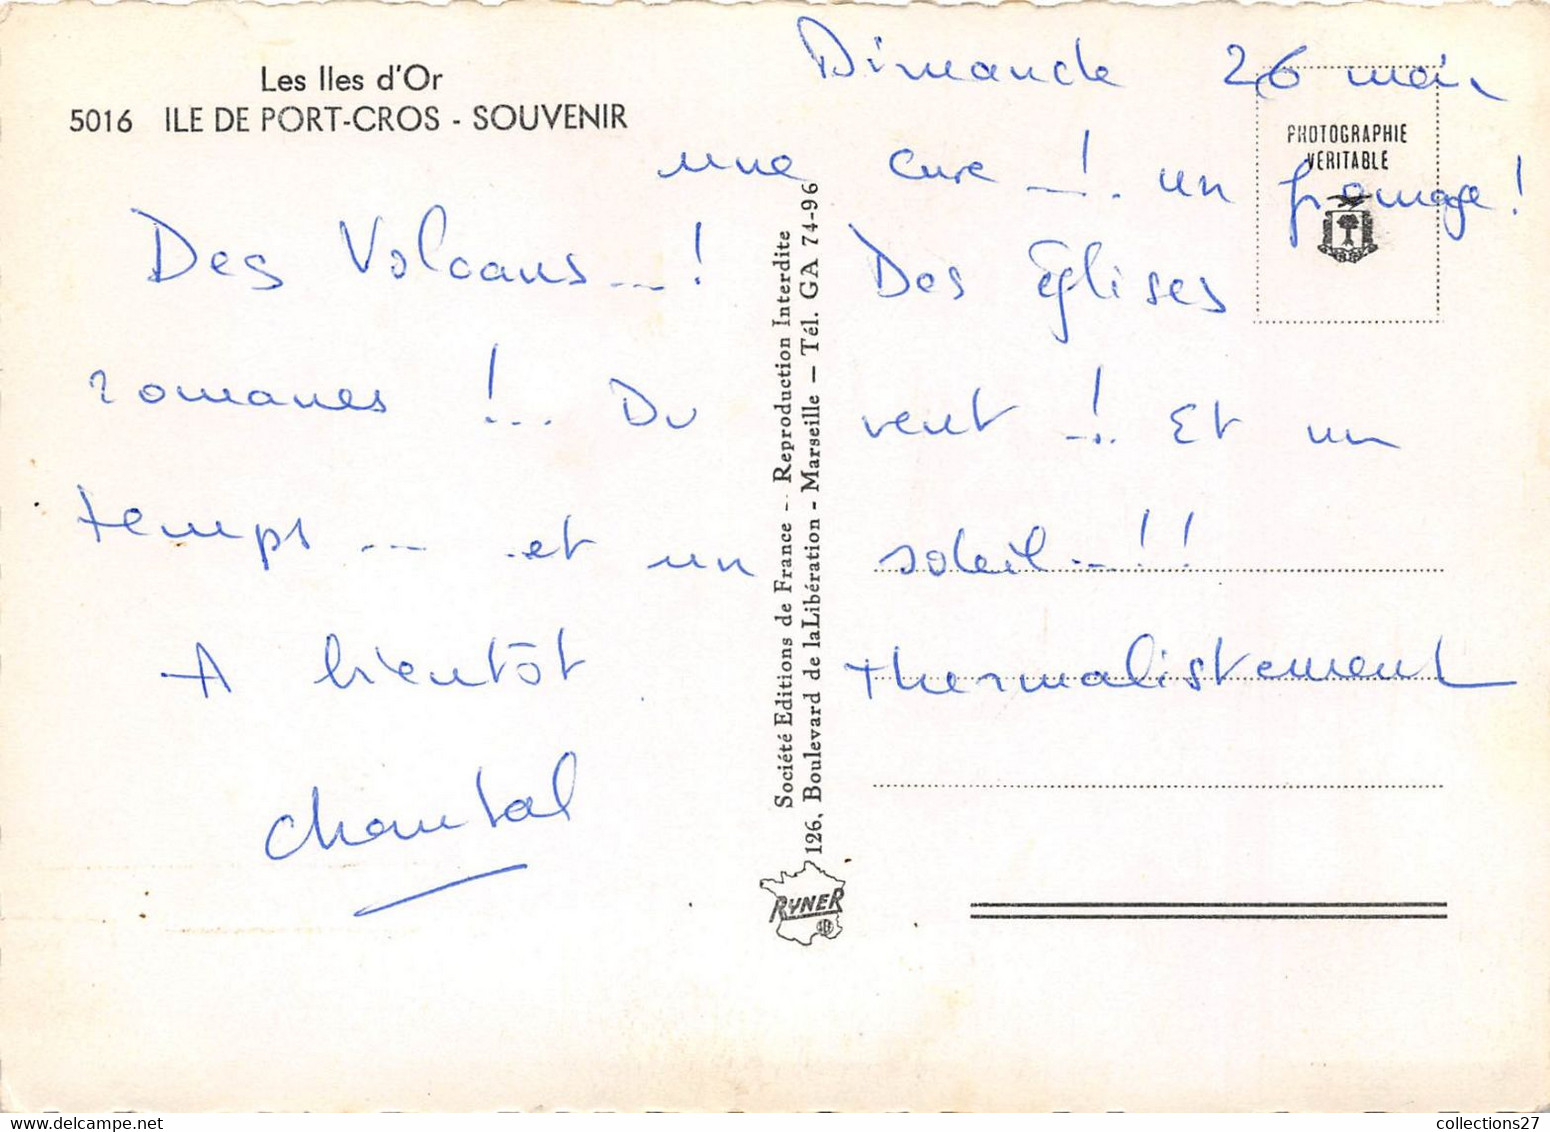 Les Iles d'Or
5016 ILE DE PORT-CROS - SOUVENIR
Dimanche 26 mai
PHOTOGRAPHIE
VERITABLE
une cure --! un fromage!
Des Volcans---! Des Églises
romanes !.. Du vent -! Et un
temps --- et un soleil--!!
A bientôt thermalistement
Chantal
Société Editions de France - Reproduction Interdite
126, Boulevard de laLibération - Marseille - Tél. GA 74-96
RYNER
collections27